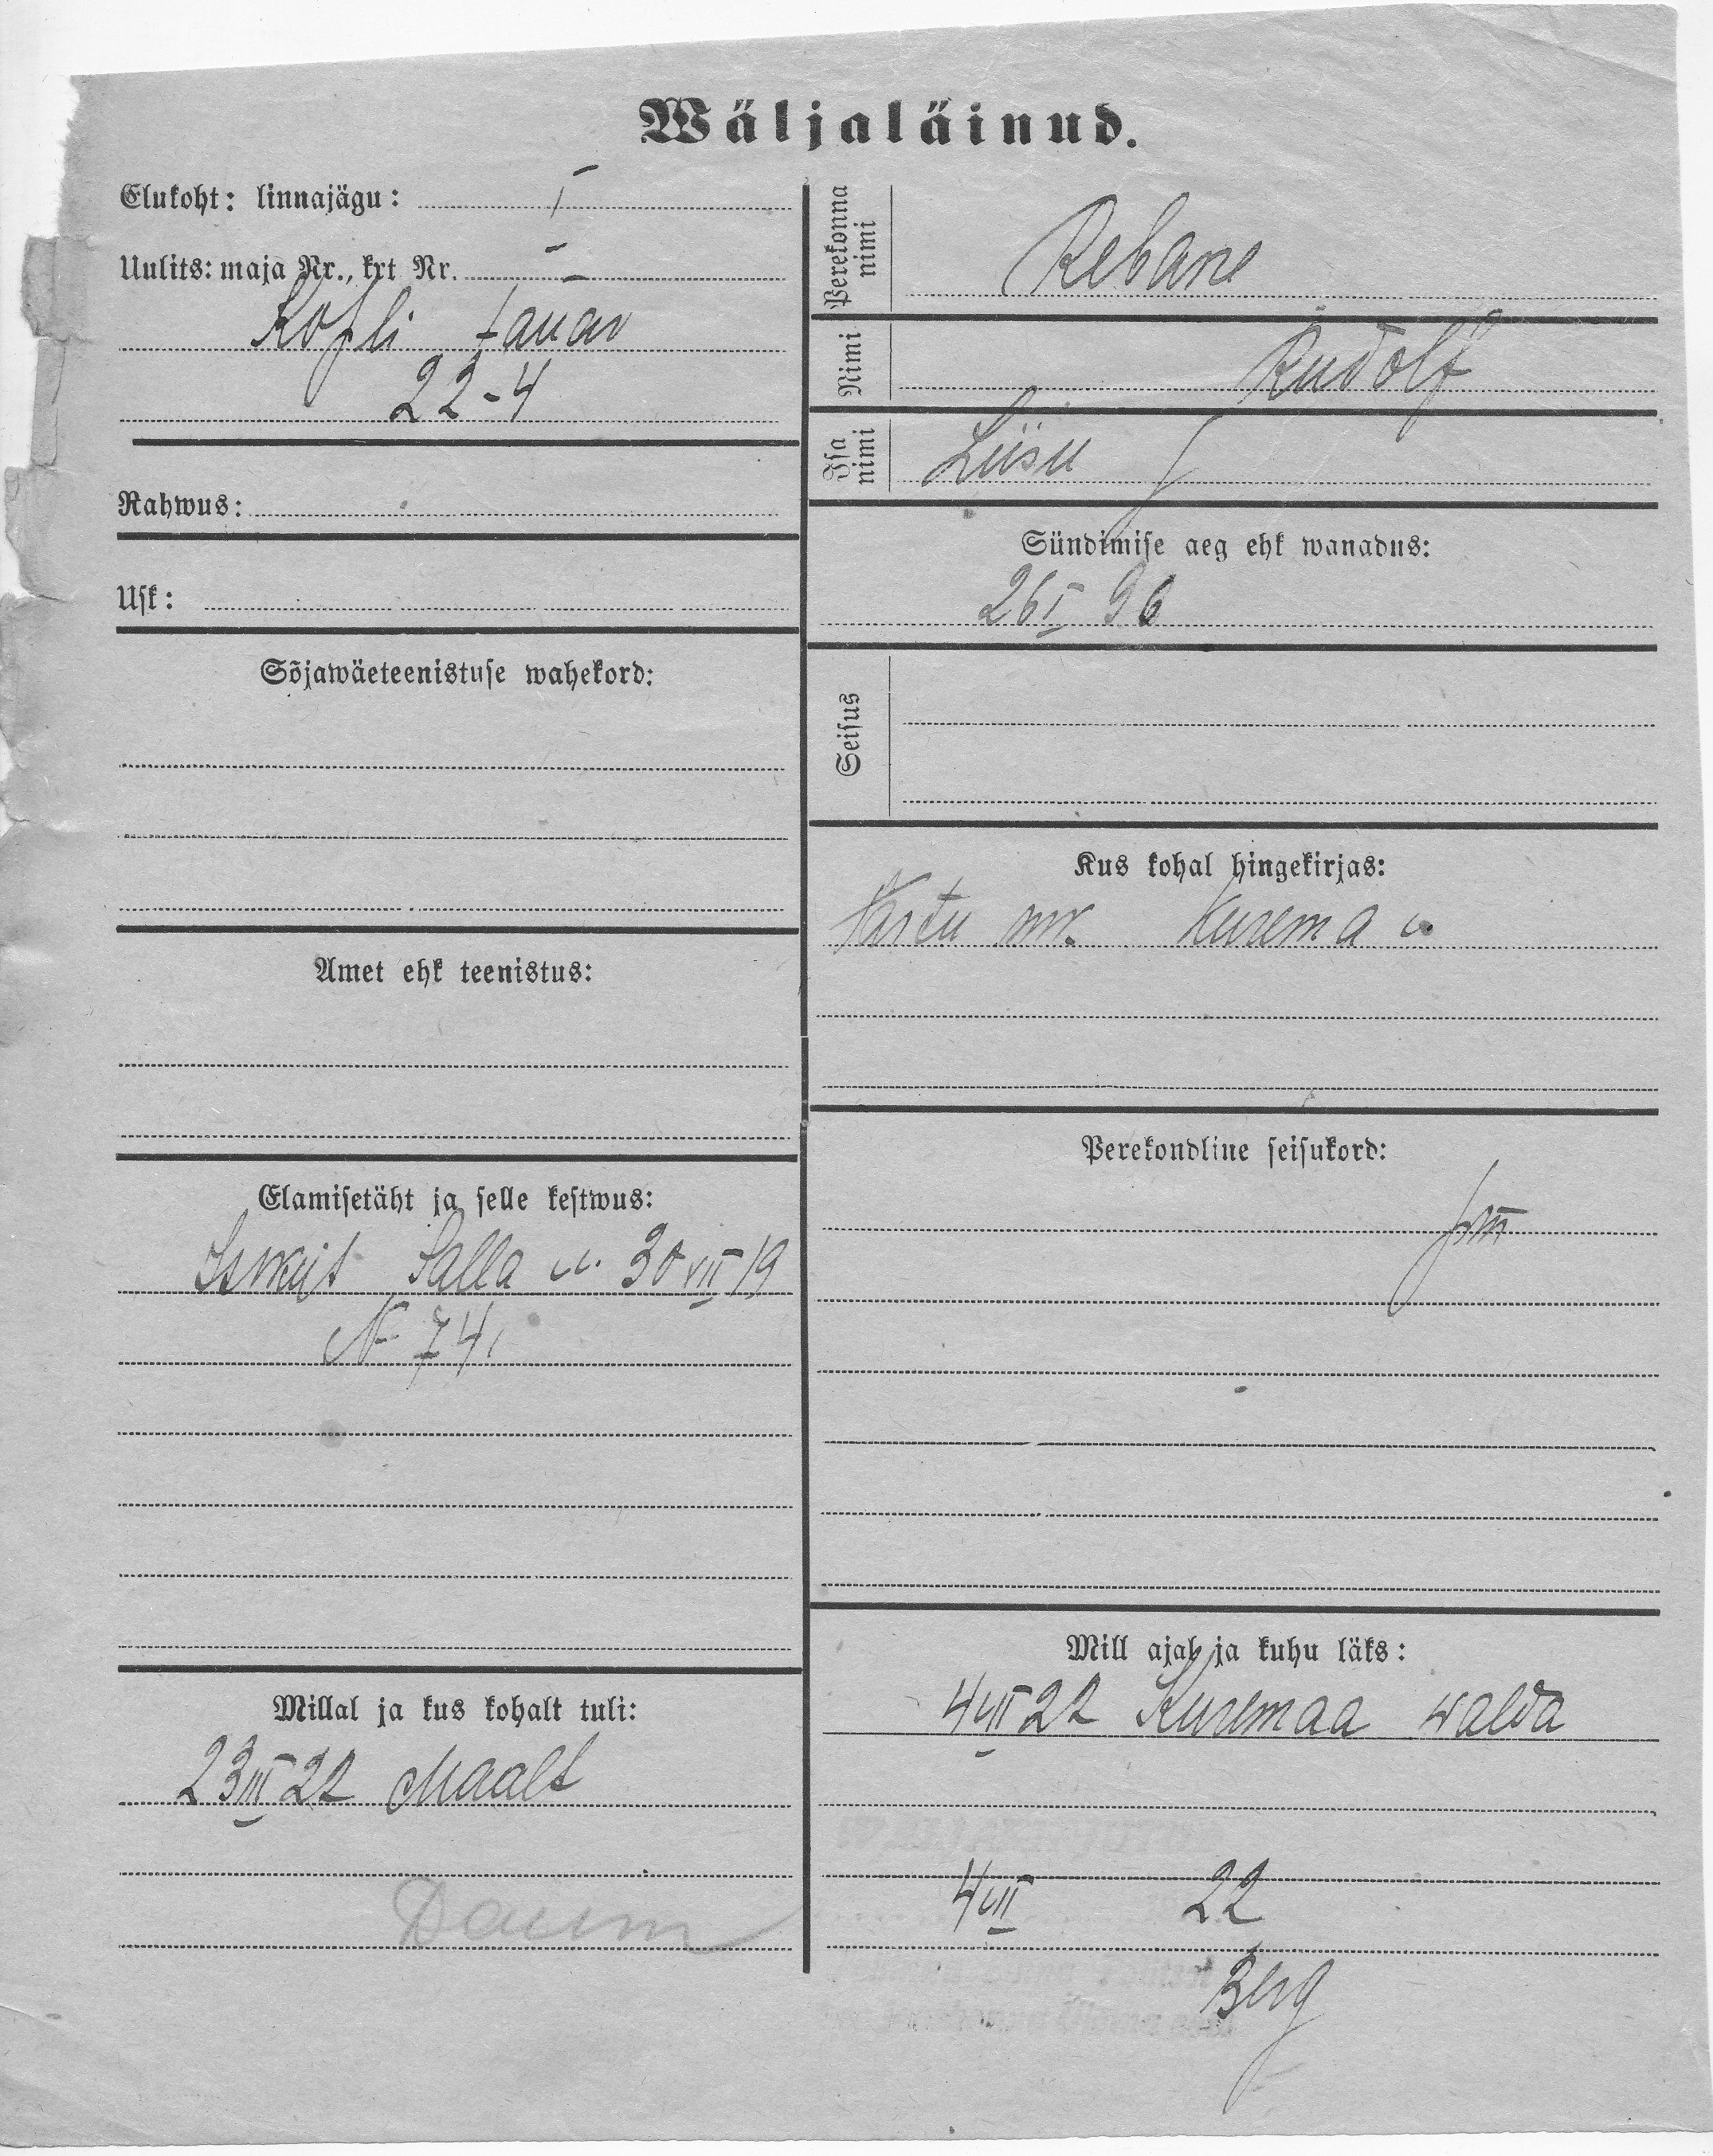 Wäljaläinud.
Elukoht: linnajägu: I
Uulits: maja Nr., krt Nr.
Kopli tänav
22-4
Rahwus:
Usk:
Sõjawäeteenistuse wahekord:
Amet ehk teenistus:
Elamisetäht ja selle kestwus:
Salla v. 30 VII 19
N 741
Millal ja kus kohalt tuli:
23 III 22 Maalt
Perekonna nimi Rebane
Nimi Rudolf
Isa nimi Liisu
Sündimise aeg ehk wanadus:
26 I 96
Seisus
Kus kohal hingekirjas:
Tartu mk. Kurema v.
Perekondline seisukord:
Mill ajal ja kuhu läks:
4 VII 22 Kuremaa walda
4 VII 22
Berg